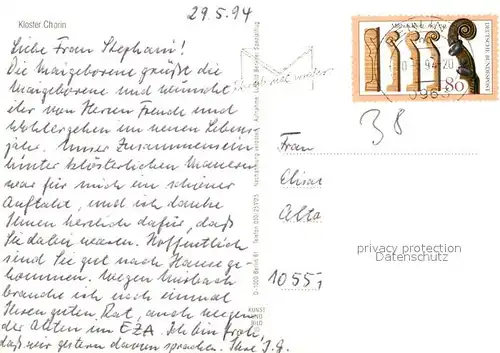 29.5.94
Kloster Chorin
Liebe Frau Stephani!
Die Maigeborene grüßt die
Maigeborene und wünscht
ihr von Herzen Freude und
Wohlergehen im neuen Lebens-
jahr. Unser Zusammensein
hinter klösterlichen Mauern
war für mich ein schöner
Auftakt, und ich danke
Ihnen herzlich dafür, daß
Sie dabei waren. Hoffentlich
sind Sie gut nach Hause ge-
kommen. Wegen
brauche ich noch einmal
Ihren guten Rat, auch wegen
der Akten im EZA. Ich bin froh,
daß wir gestern davon sprachen. Ihre I. G.
DEUTSCHE BUNDESPOST
80
38
Frau
Elisa
Alto
10557
privacy protection
Datenschutz
KUNST
UND
BILD